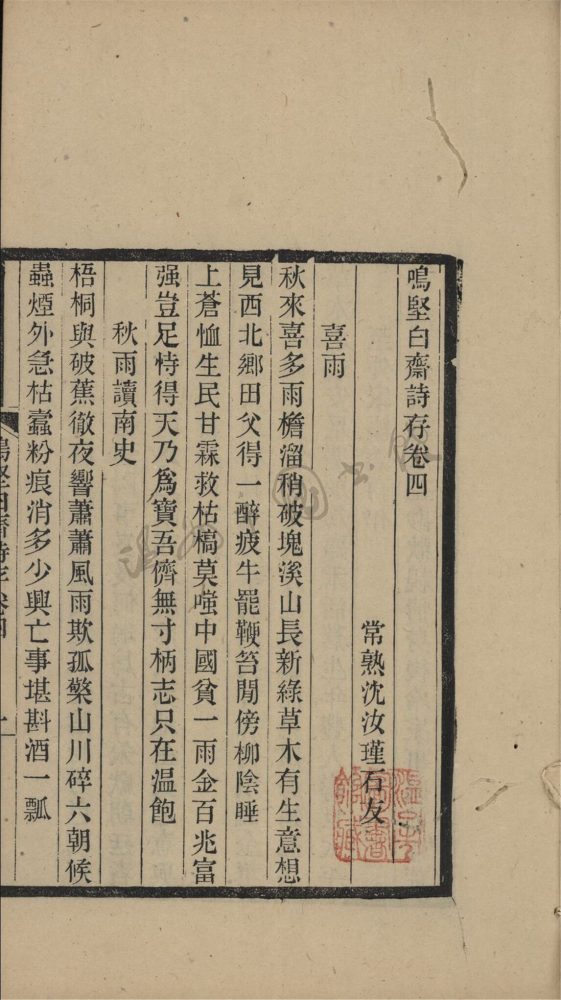 鳴堅白齋詩存卷四
常熟沈汝瑾石友
喜雨
秋來喜多雨檐溜稍破塊溪山長新綠草木有生意想
見西北鄉田父得一醉疲牛罷鞭笞閒傍柳陰睡
上蒼恤生民甘霖救枯槁莫嗤中國貧一雨金百兆富
强豈足恃得天乃爲寶吾儕無寸柄志只在温飽
秋雨讀南史
梧桐與破蕉徹夜響蕭蕭風雨欺孤檠山川碎六朝候
蟲煙外急枯蠹粉痕消多少興亡事堪斟酒一瓢
鳴堅白齋詩存卷四
一